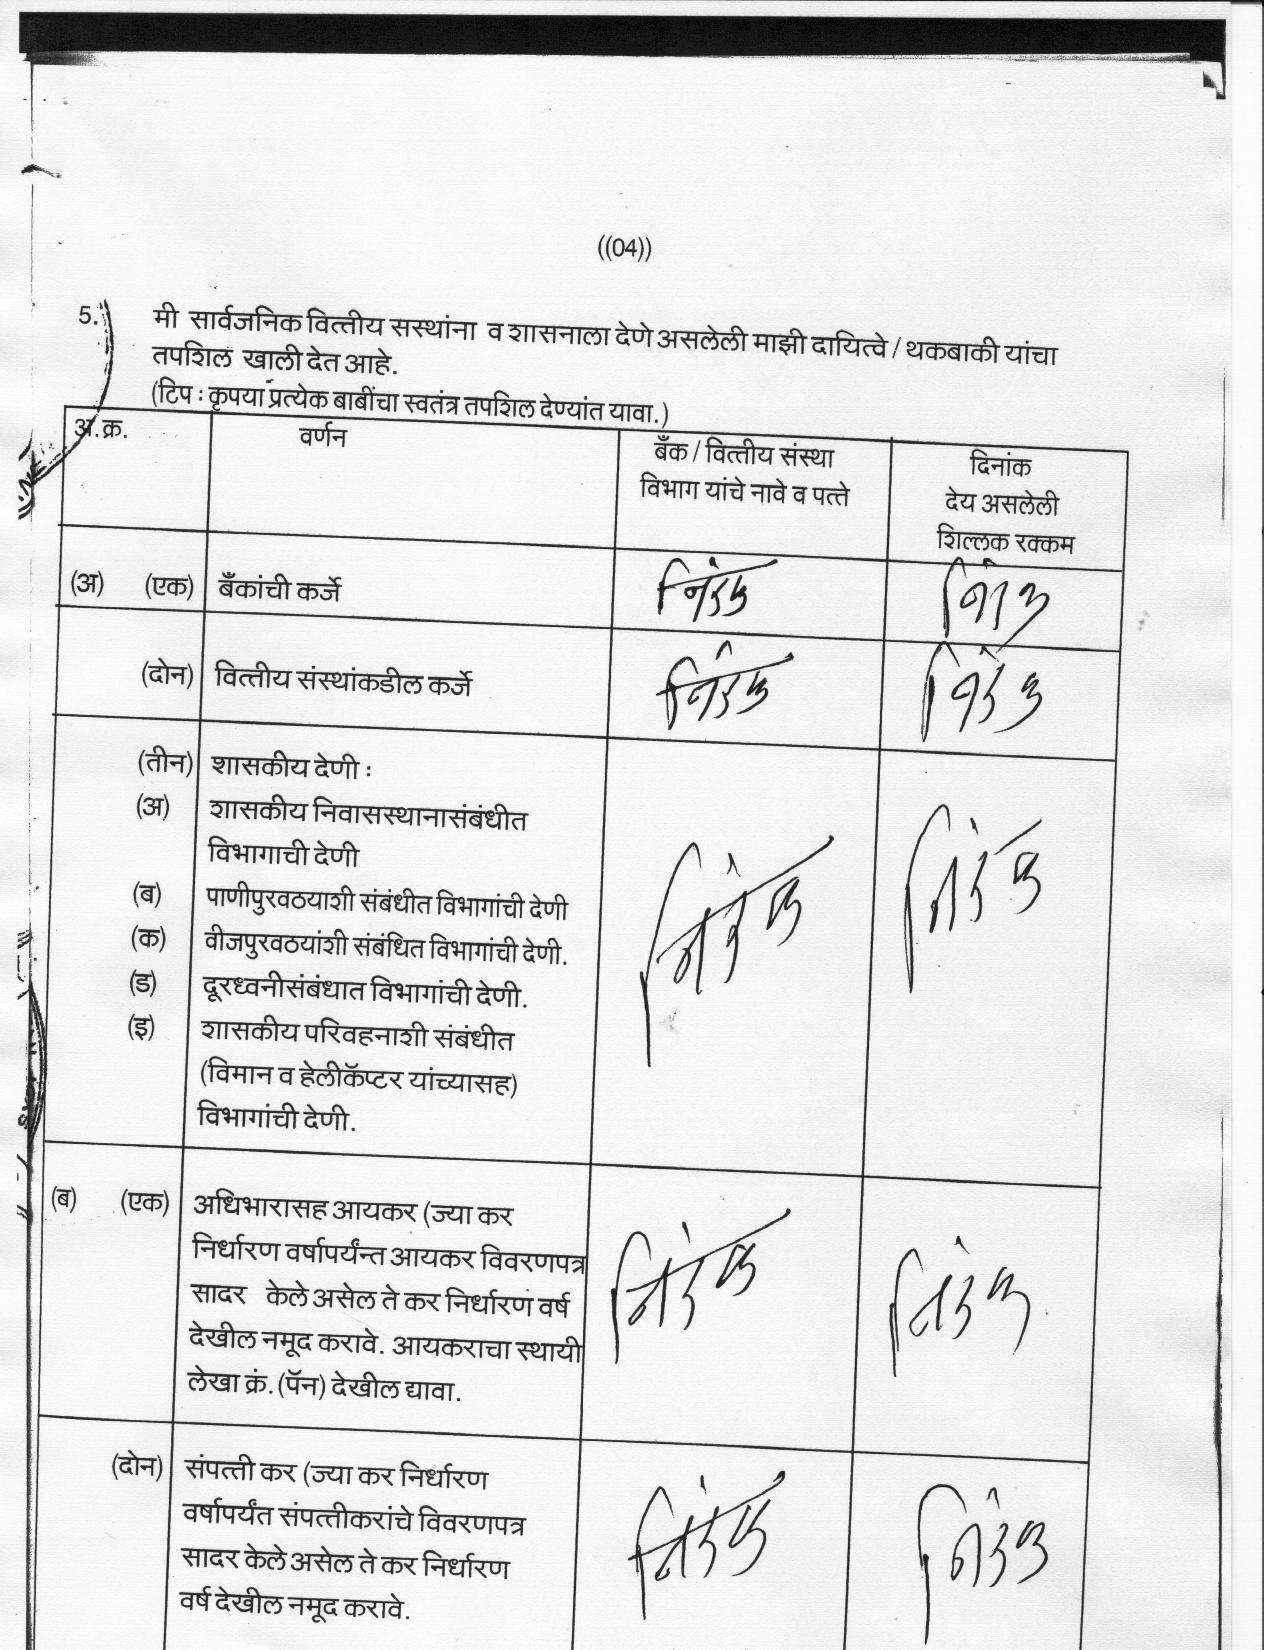 ((04))
5. मी सार्वजनिक वित्तीय सस्थांना व शासनाला देणे असलेली माझी दायित्वे / थकबाकी यांचा
तपशिल खाली देत आहे.
(टिप : कृपया प्रत्येक बाबींचा स्वतंत्र तपशिल देण्यांत यावा.)
अ.क्र. वर्णन बँक / वित्तीय संस्था दिनांक
विभाग यांचे नावे व पत्ते देय असलेली
शिल्लक रक्कम
(अ) (एक) बँकांची कर्जे निरंक निरंक
(दोन) वित्तीय संस्थांकडील कर्जे निरंक निरंक
(तीन) शासकीय देणी :
(अ) शासकीय निवासस्थानासंबंधीत
विभागाची देणी निरंक निरंक
(ब) पाणीपुरवठयाशी संबंधीत विभागांची देणी
(क) वीजपुरवठयांशी संबंधित विभागांची देणी.
(ड) दूरध्वनीसंबंधात विभागांची देणी.
(इ) शासकीय परिवहनाशी संबंधीत
(विमान व हेलीकॅप्टर यांच्यासह)
विभागांची देणी.
(ब) (एक) अधिभारासह आयकर (ज्या कर
निर्धारण वर्षापर्यंन्त आयकर विवरणपत्र निरंक निरंक
सादर केले असेल ते कर निर्धारण वर्ष
देखील नमूद करावे. आयकराचा स्थायी
लेखा क्रं. (पॅन) देखील द्यावा.
(दोन) संपत्ती कर (ज्या कर निर्धारण
वर्षापर्यंत संपत्तीकरांचे विवरणपत्र निरंक निरंक
सादर केले असेल ते कर निर्धारण
वर्ष देखील नमूद करावे.